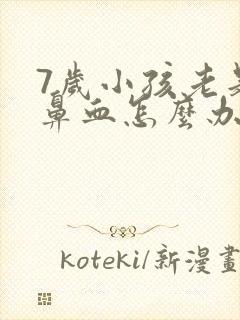 7歲小孩老是
鼻血怎麼办
koteki/新漫畫